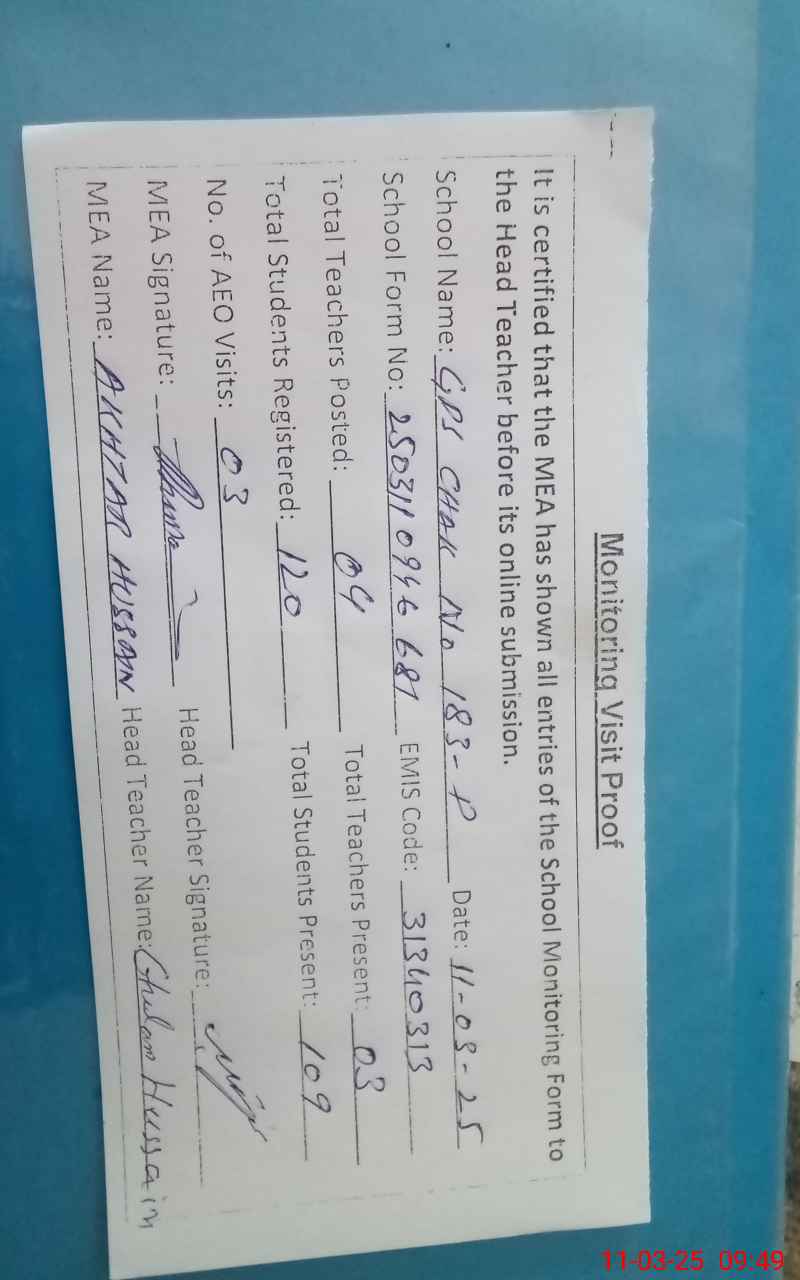 Monitoring Visit Proof
It is certified that the MEA has shown all entries of the School Monitoring Form to
the Head Teacher before its online submission.
School Name: GPS CHAK No 183-P Date: 11-03-25
School Form No: 250311 0946 681 EMIS Code: 31340313
Total Teachers Posted: 04 Total Teachers Present: 03
Total Students Registered: 120 Total Students Present: 109
No. of AEO Visits: 03
MEA Signature: Head Teacher Signature:
MEA Name: AKHTAR HUSSAIN Head Teacher Name: Ghulam Hussain
11-03-25 09:49